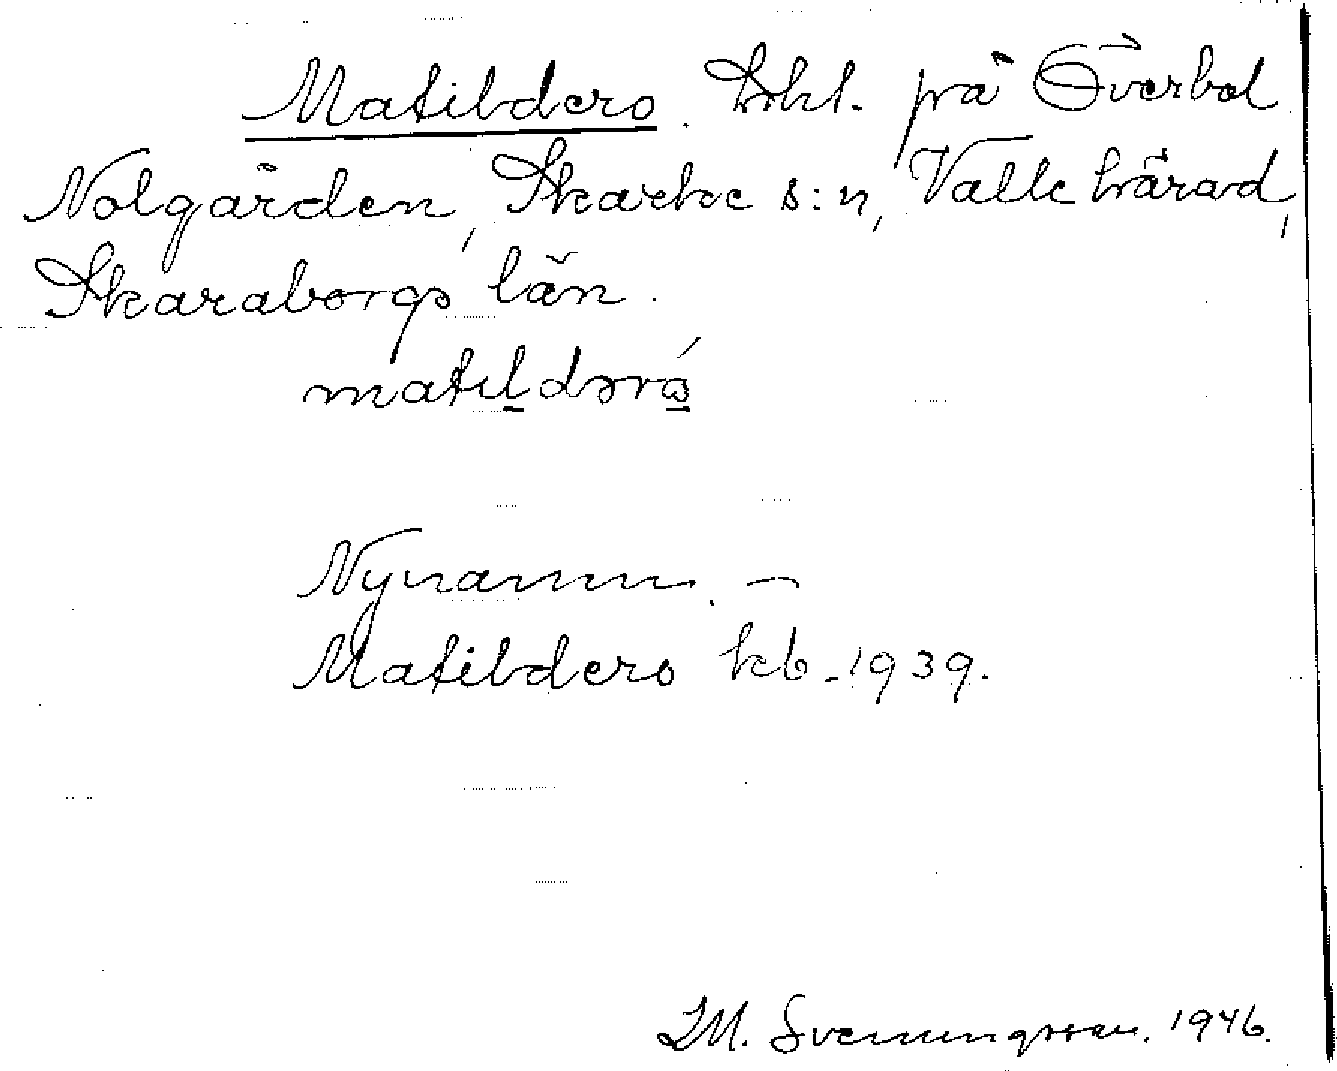 Matildero. Lht. på Överbol
Nolgården, Skarke s:n, Valle härad,
Skaraborgs län.
matildərώ̣
Nynamn. —
Matildero kb. 1939.
I M. Svenungsson. 1946.